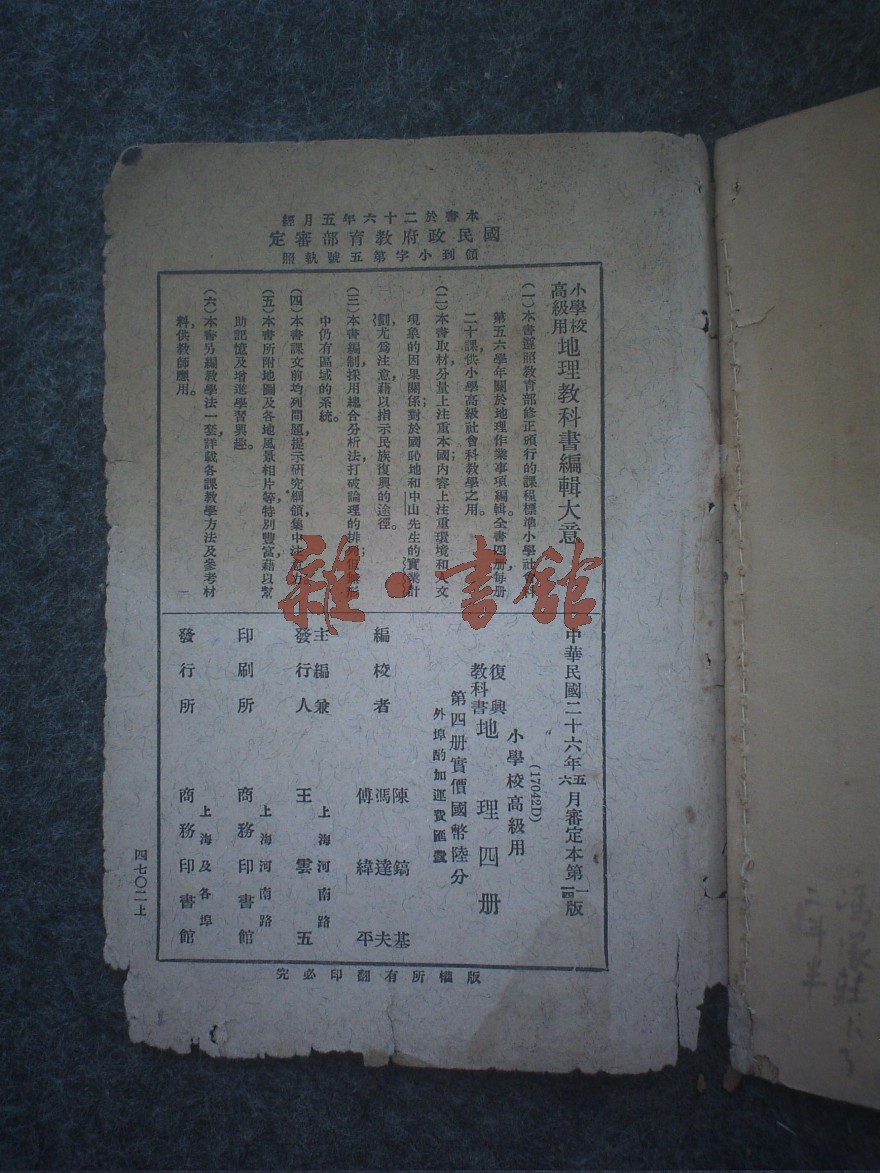 本書於二十六年五月經
國民政府教育部審定
領到小字第五號執照
小學校
高級用
地理教科書編輯大意
(一)本書遵照教育部修正頒行的課程標準小學社會科
第五六學年關於地理作業事項編輯,全書四册每册
二十課供小學高級社會科教學之用。
(二)本書取材分量上注重本國;內容上注重環境和人文
現象的因果關係;對於國恥地和中山先生的實業計
劃,尤爲注意藉以指示民族復興的途徑。
(三)本書編制採用總合分析法,打破論理的排列;但無形
中仍有區域的系統。
(四)本書課文前均列問題,提示研究綱領,集中注意力。
(五)本書所附地圖及各地風景相片等,特別豐富,藉以幫
助記憶及增進學習興趣。
(六)本書另編教學法一套,詳載各課教學方法及參考材
料,供教師應用。
中華民國二十六年五六月審定本第一四版
(17042D)
小學校高級用
復興
教科書
地理四册
第四册實價國幣陸分
外埠酌加運費匯費
編校者
陳鎬基
馮達夫
傅緯平
主編兼
發行人
上海河南路
王雲五
印刷所
上海河南路
商務印書館
發行所
上海及各埠
商務印書館
版權所有翻印必究
四七〇二上
雜·書館